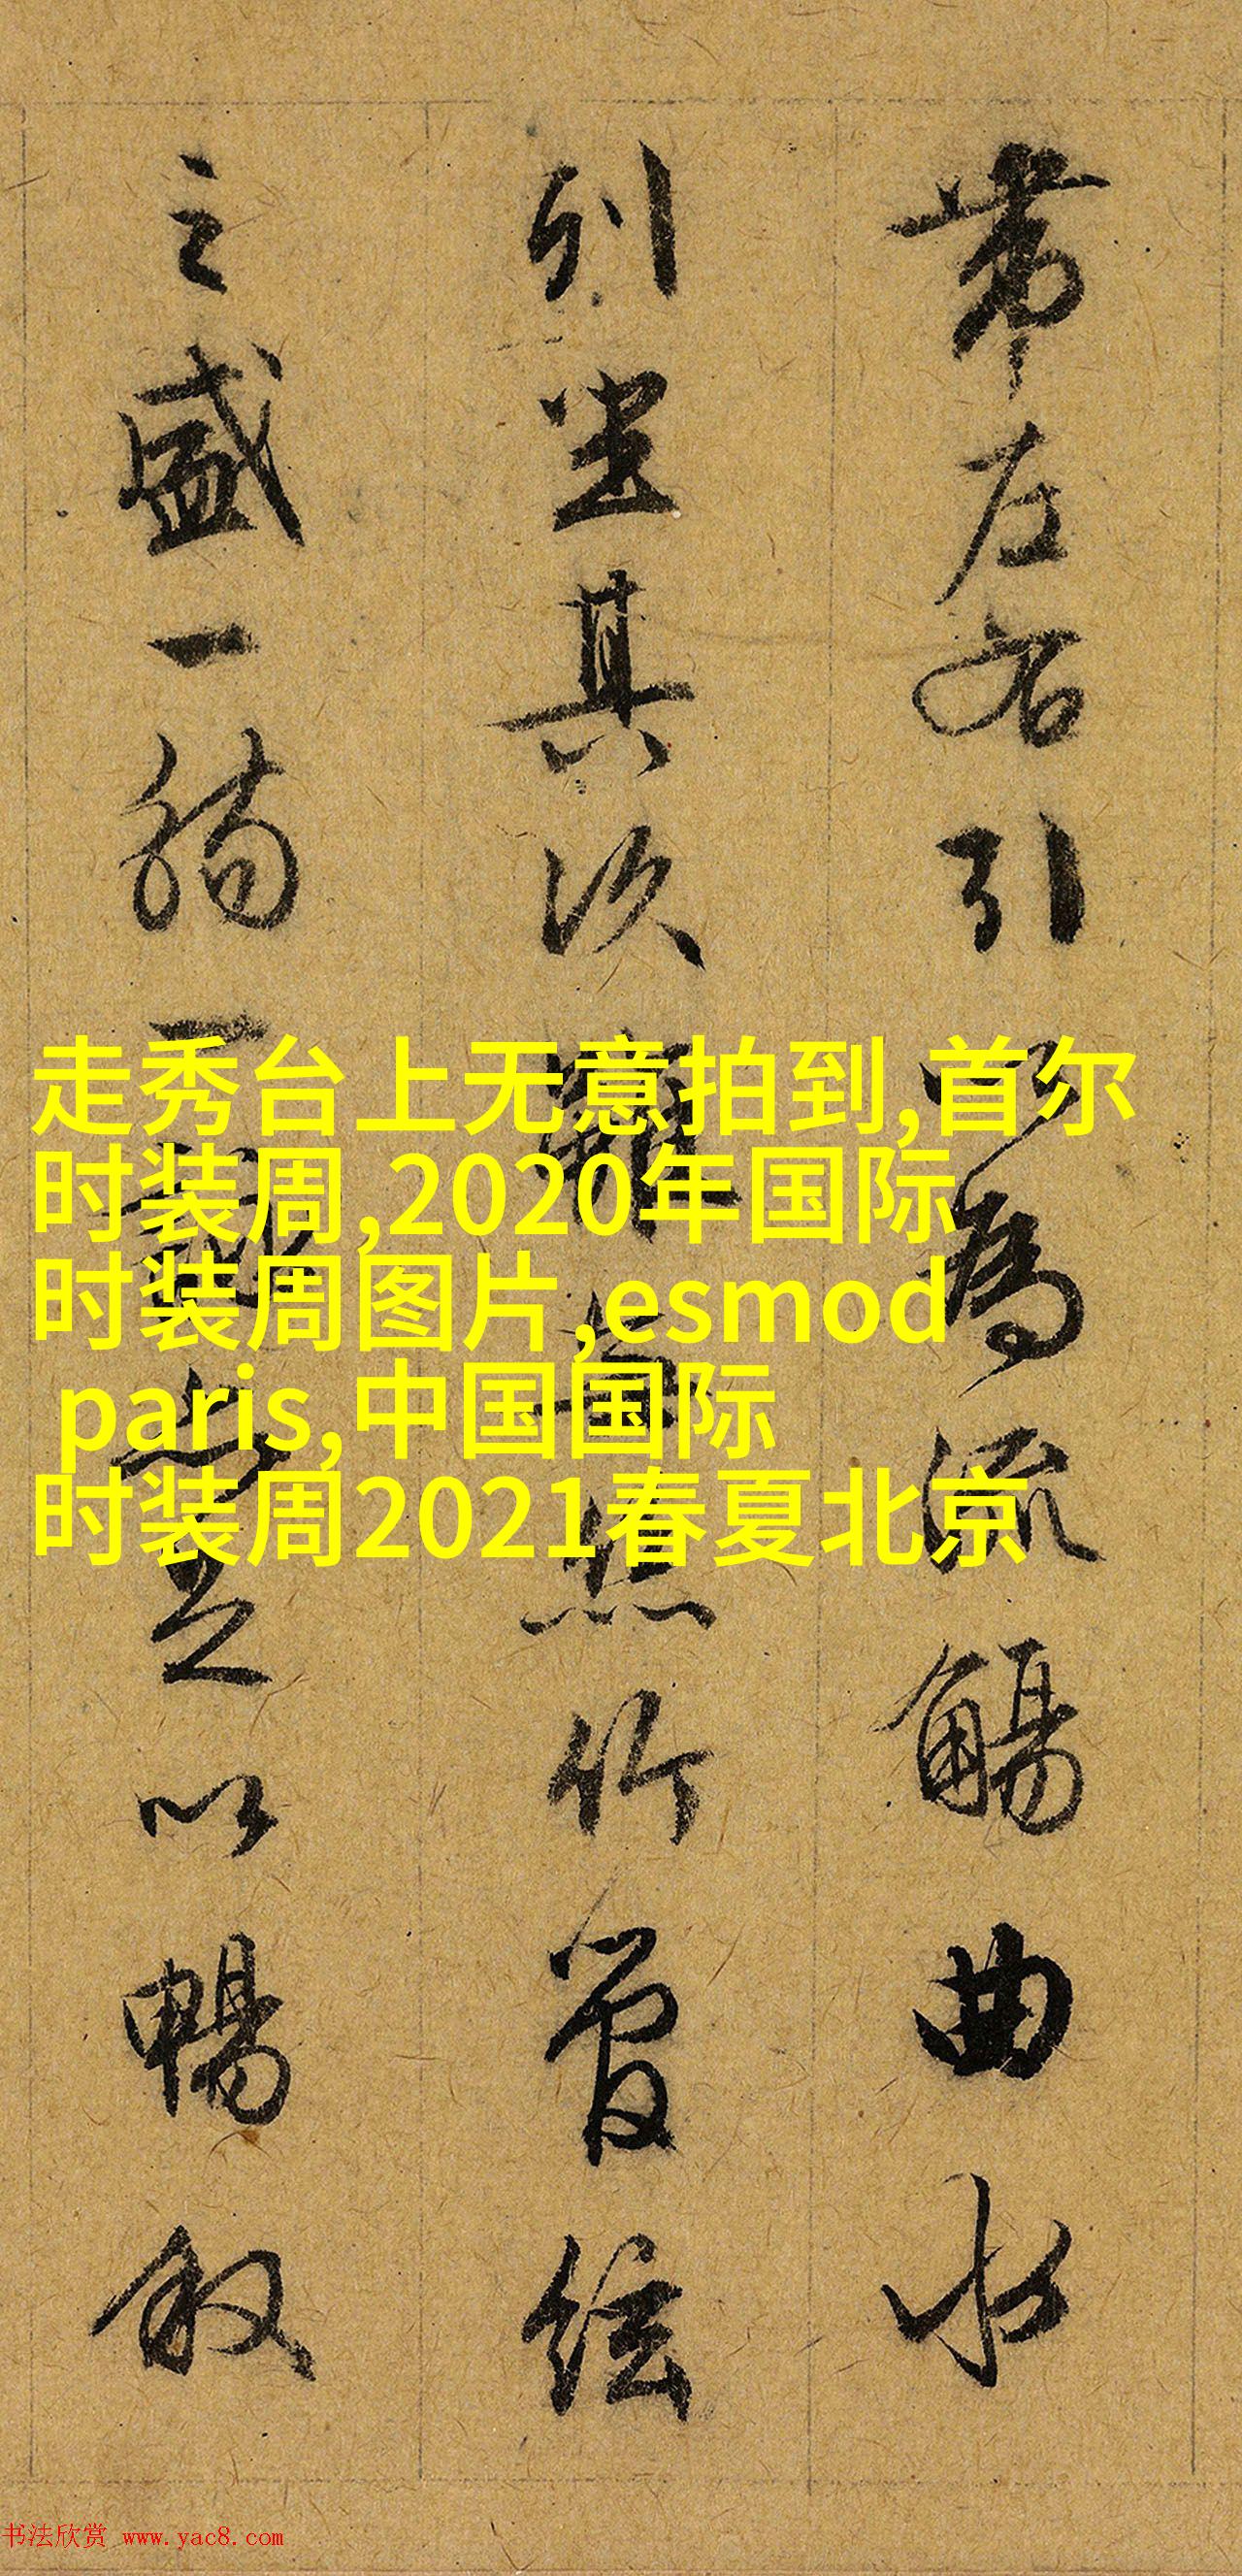 帶左右引以為流觴曲水
列坐其次雖無絲竹管絃
之盛一觴一詠亦足以暢敘
走秀台上无意拍到,首尔
时装周,2020年国际
时装周图片,esmod
paris,中国国际
时装周2021春夏北京
书法欣赏 www.yac8.com